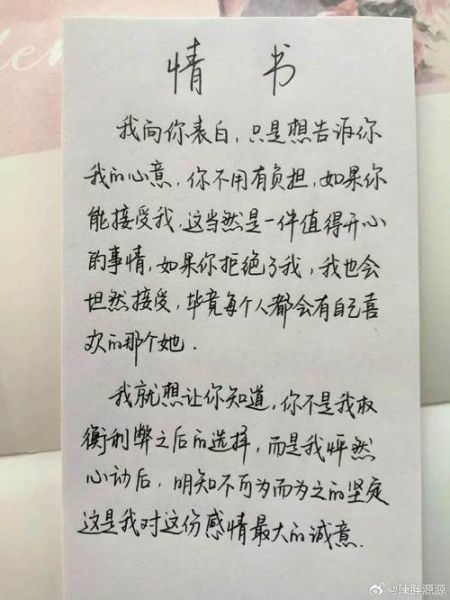 情书
我向你表白，只是想告诉你
我的心意，你不用有负担，如果你
能接受我，这当然是一件值得开心
的事情，如果你拒绝了我，我也会
坦然接受，毕竟每个人都会有自己喜
欢的那个她.
我就想让你知道，你不是我权
衡利弊之后的选择，而是我怦然
心动后，明知不可为而为之的坚定
这是我对这份感情最大的诚意.
@陳胖源源